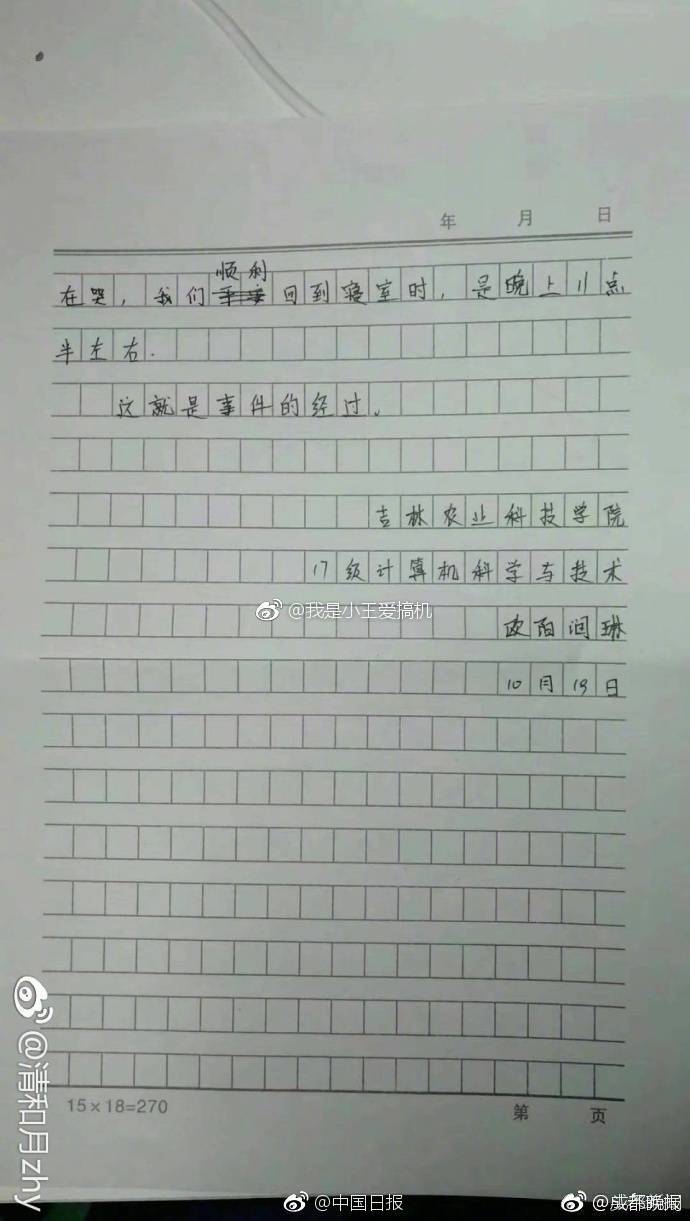 年 月 日
顺利
在哭，我们回到寝室时，是晚上11点
半左右.
这就是事件的经过。
吉林农业科技学院
17级计算机科学与技术
@我是小王爱搞机
欧阳润琳
10月19日
@清和月zhy
15×18=270
第 页
@中国日报
@成都晚报